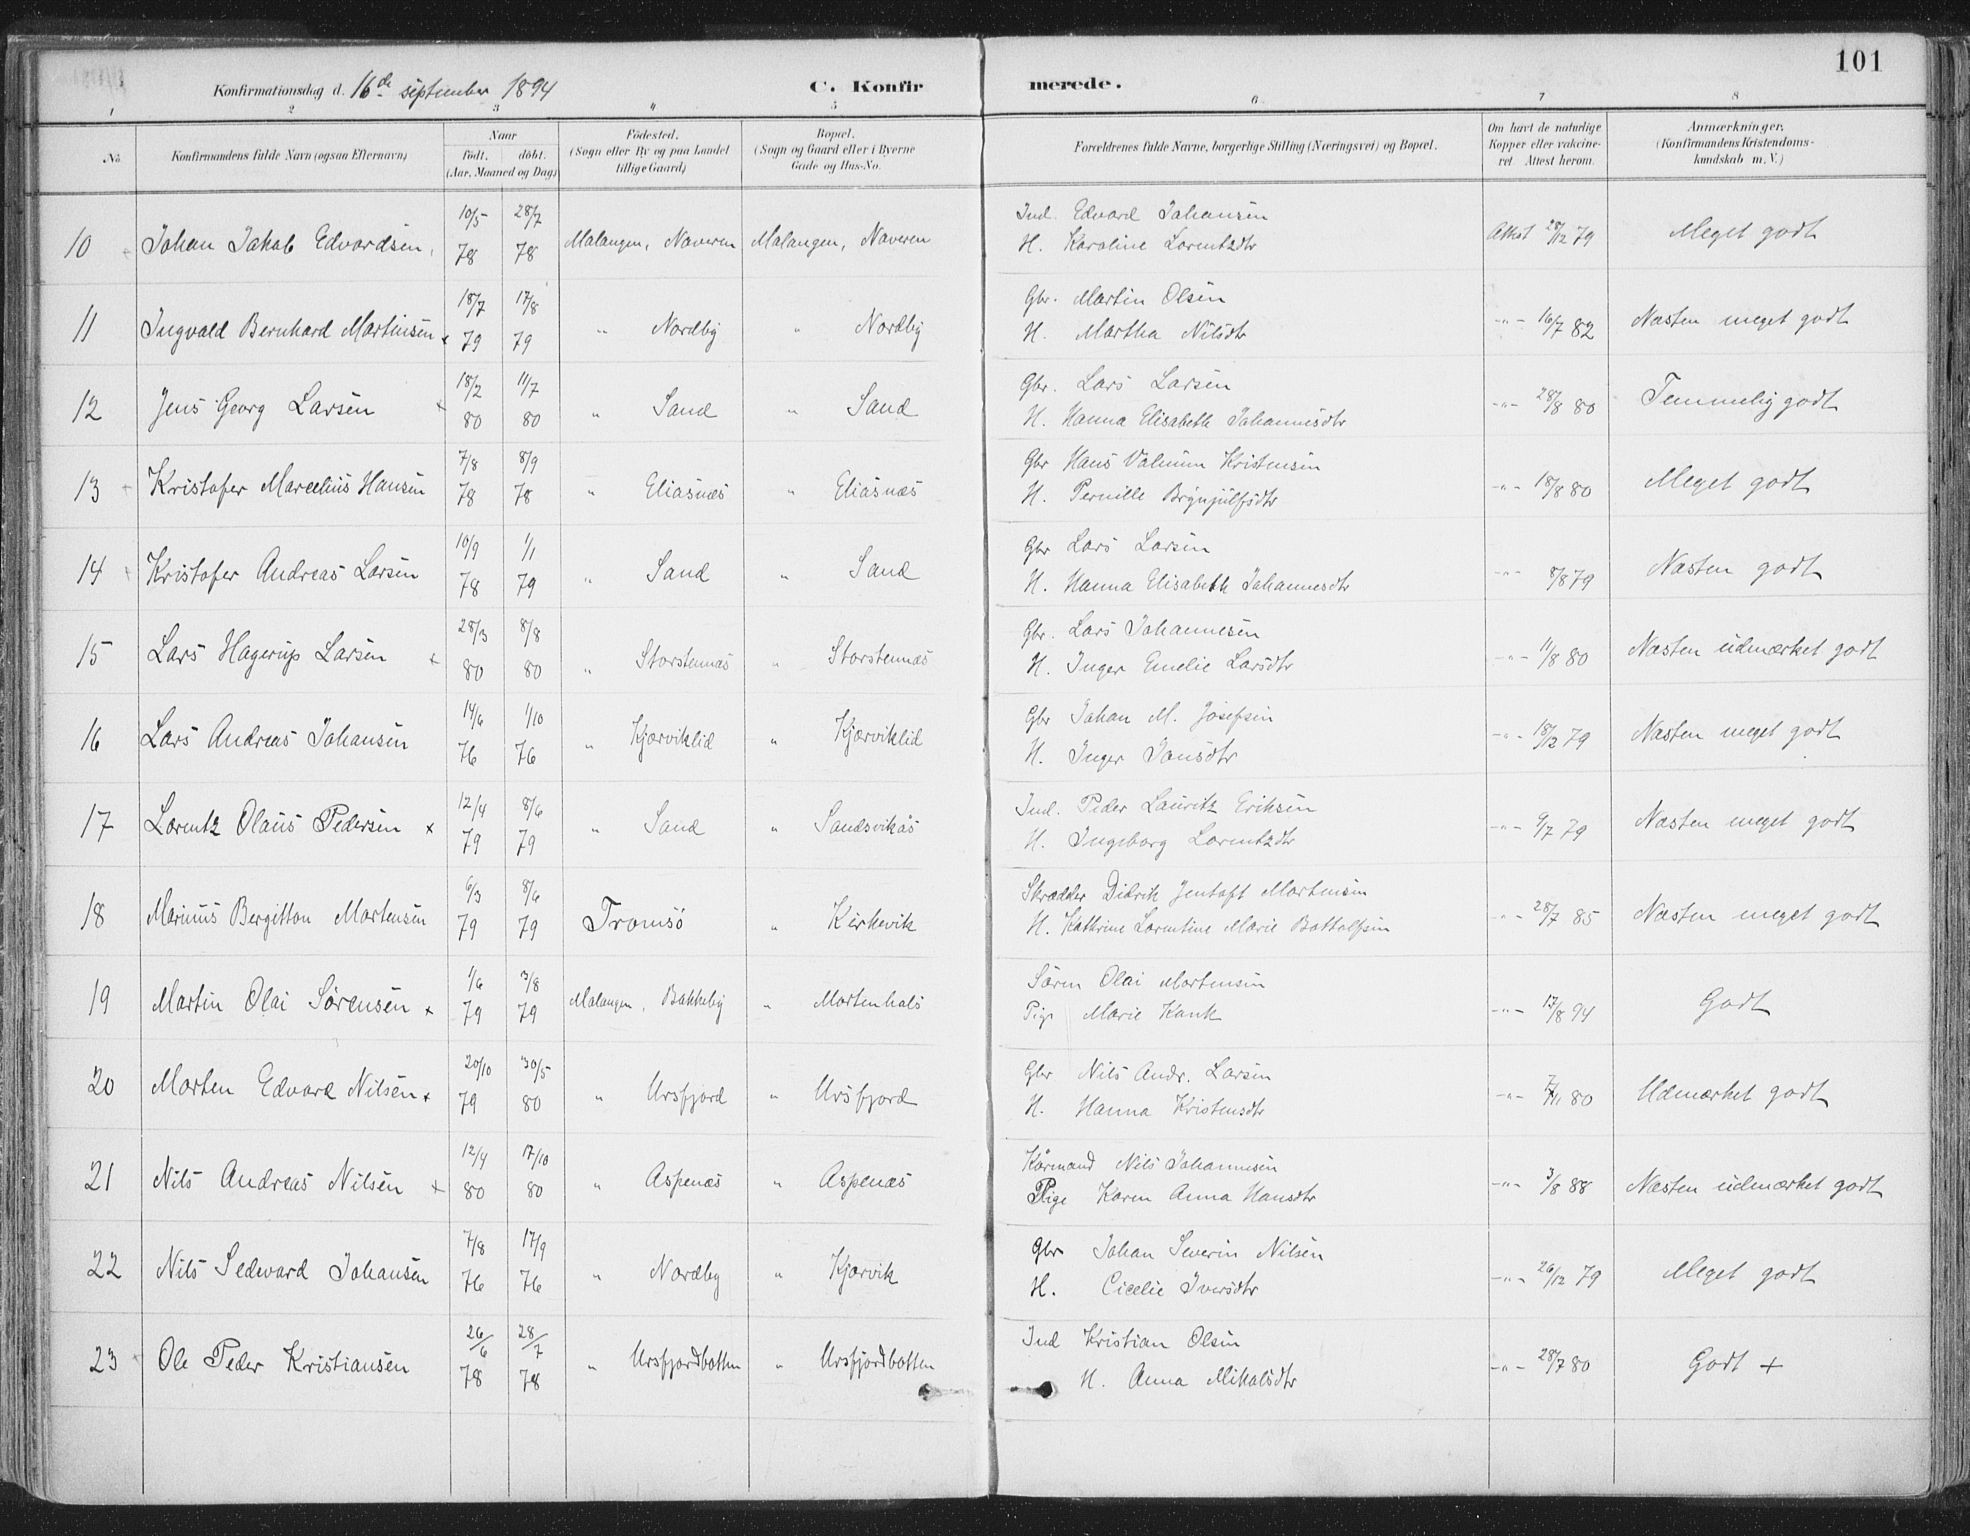 101
Konfirmationsdag d. 16de september 1894 C. Konfirmerede.
1 2 3 4 5 6 7 8
No. Konfirmandens fulde Navn (ogsaa Efternavn) Naar födt. döbt. (Aar, Maaned og Dag) Födested. (Sogn eller By og paa Landet tillige Gaard) Bopæl. (Sogn og Gaard eller i Byerne Gade og Hus-No. Forældrenes fulde Navne, borgerlige Stilling (Næringsvei) og Bopæl. Om havt de naturlige Kopper eller vakcineret. Attest herom. Anmærkninger. (Konfirmandens Kristendomskundskab m. V.)
10 Johan Jakob Edvardsen 10/5 78 28/7 78 Malangen, Naveren Malangen, Naveren Ind. Edvard Johansen
H. Karoline Lorentzdtr Attest 28/12 79 Meget godt
11 Ingvald Bernhard Martinsen x 18/7 79 17/8 79 " Nordby " Nordby Gbr. Martin Olsen
H. Martha Nilsdtr -"- 16/7 82 Næsten meget godt
12 Jens Georg Larsen x 18/2 80 11/7 80 " Sand " Sand Gbr. Lars Larsen
H. Hanna Elisabeth Johannesdtr -"- 28/8 80 Temmelig godt
13 Kristofer Marcelius Hansen 7/8 78 8/9 78 " Eliasnæs " Eliasnæs Gbr Hans Kristensen
H. Pernille Brynjulfsdtr -"- 18/8 80 Meget godt
14 Kristofer Andreas Larsen 10/9 78 1/1 79 " Sand " Sand Gbr Lars Larsen
H. Hanna Elisabeth Johannesdtr -"- 8/8 79 Næsten godt
15 Lars Hagerup Larsen x 28/3 80 8/8 80 " Storstennæs " Storstennæs Gbr. Lars Johannesen
H. Inger Emelie Larsdtr -"- 11/8 80 Næsten udmærket godt
16 Lars Andreas Johansen 14/6 76 1/10 76 " Kjærviklid " Kjærviklid Gbr Johan M. Josefsen
H. Inger Jansdtr -"- 18/12 79 Næsten meget godt
17 Lorentz Olaus Pedersen x 12/4 79 8/6 79 " Sand " Sandsvikås Ind. Peder Lauritz Eriksen
H. Ingeborg Lorentzdtr -"- 9/7 79 Næsten meget godt
18 Marius Bergitton Mortensen 6/3 79 8/6 79 Tromsö " Kirkevik Skrædder Didrik Jentoft Mortensen
H. Kathrine Lorentine Marie Bottolfsen -"- 28/7 85 Næsten meget godt
19 Martin Olai Sørensen x 1/6 79 3/8 79 Malangen, Bakkeby " Mortenhals Sören Olai Mortensen
Pige Marie Kank -"- 17/8 94 Godt
20 Morten Edvard Nilsen x 20/10 79 30/5 80 " Ursfjord " Ursfjord Gbr Nils Andr. Larsen
H. Hanna Kristensdtr -"- 7/11 80 Udmærket godt
21 Nils Andreas Nilsen x 12/4 80 17/10 80 " Aspenæs " Aspenæs Kårmand Nils Johannesen
Pige Karen Anna Hansdtr -"- 3/8 88 Næsten udmærket godt
22 Nils Sedevard Johansen 7/8 76 17/9 76 " Nordby " Kjærvik Gbr Johan Severin Nilsen
H. Cicelie Iversdtr -"- 26/12 79 Meget godt
23 Ole Peder Kristiansen 26/6 78 28/7 78 " Ursfjordbotten " Ursfjordbotten Ind Kristian Olsen
H. Anna Mikalsdtr -"- 28/7 80 Godt +